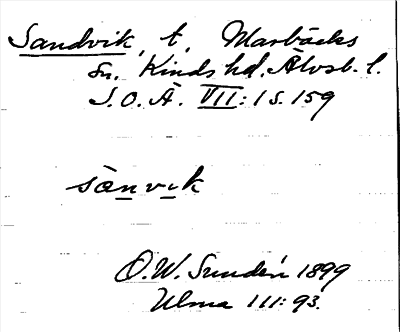 Sandvik, t, Marbäcks
sn. Kinds hd. Älvsb. l.
S.O.Ä. VII:1 s. 159
sänvik
O.W. Sundén 1899
Ulma 111:93.